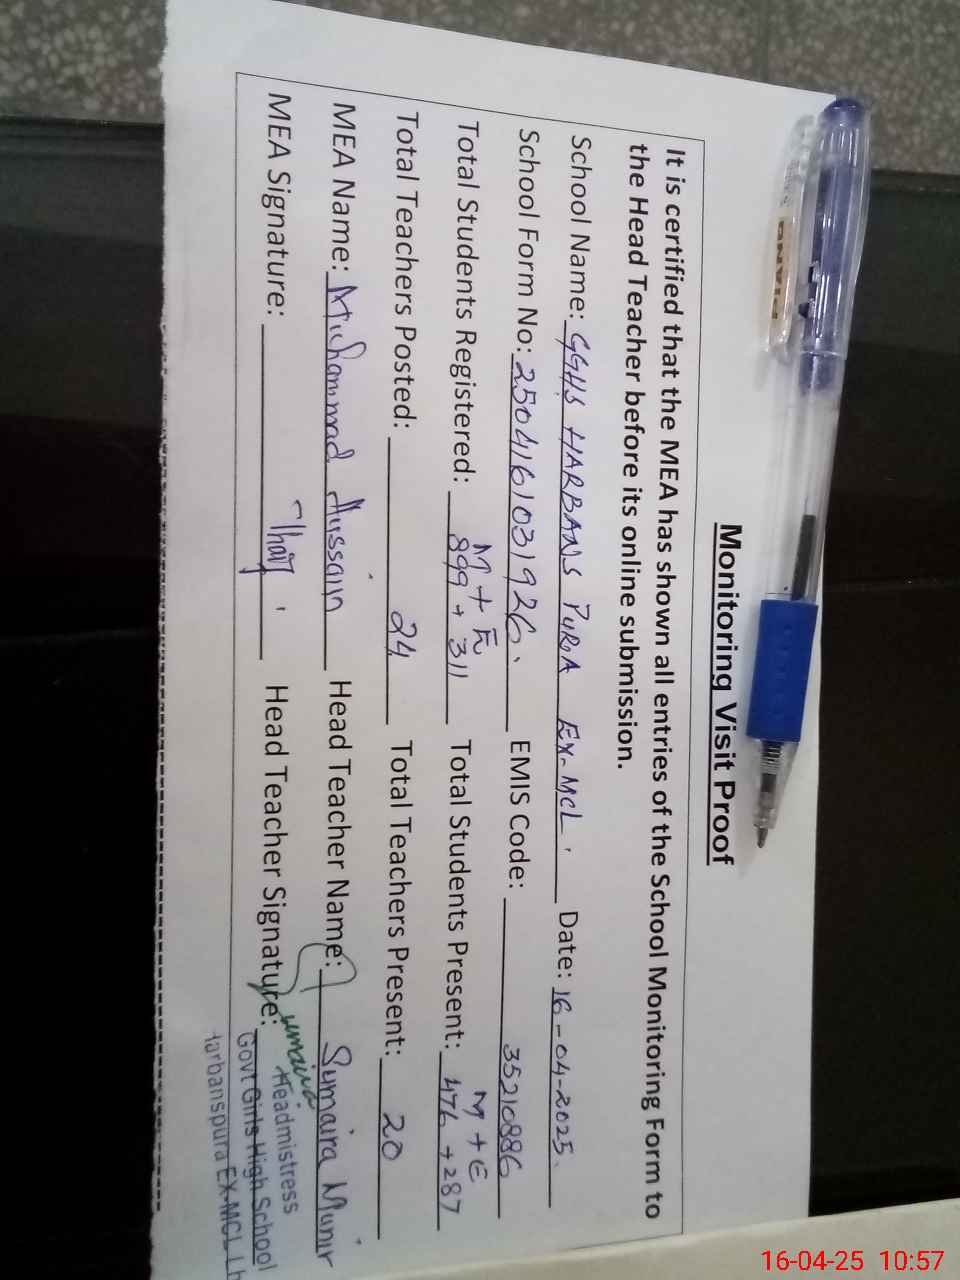 Monitoring Visit Proof
It is certified that the MEA has shown all entries of the School Monitoring Form to
the Head Teacher before its online submission.
School Name: GGHS HARBANS PURA EX-MCL. Date: 16-04-2025.
School Form No: 2504161031926. EMIS Code: 35210886
M + E M + E
Total Students Registered: 899 + 311 Total Students Present: 476 + 287
Total Teachers Posted: 24 Total Teachers Present: 20
MEA Name: Muhammad Hussain Head Teacher Name: Sumaira Munir
MEA Signature: Head Teacher Signature: Sumaira
Headmistress
Govt Girls High School
Harbanspura EX-MCL Lh
PIANO
16-04-25 10:57